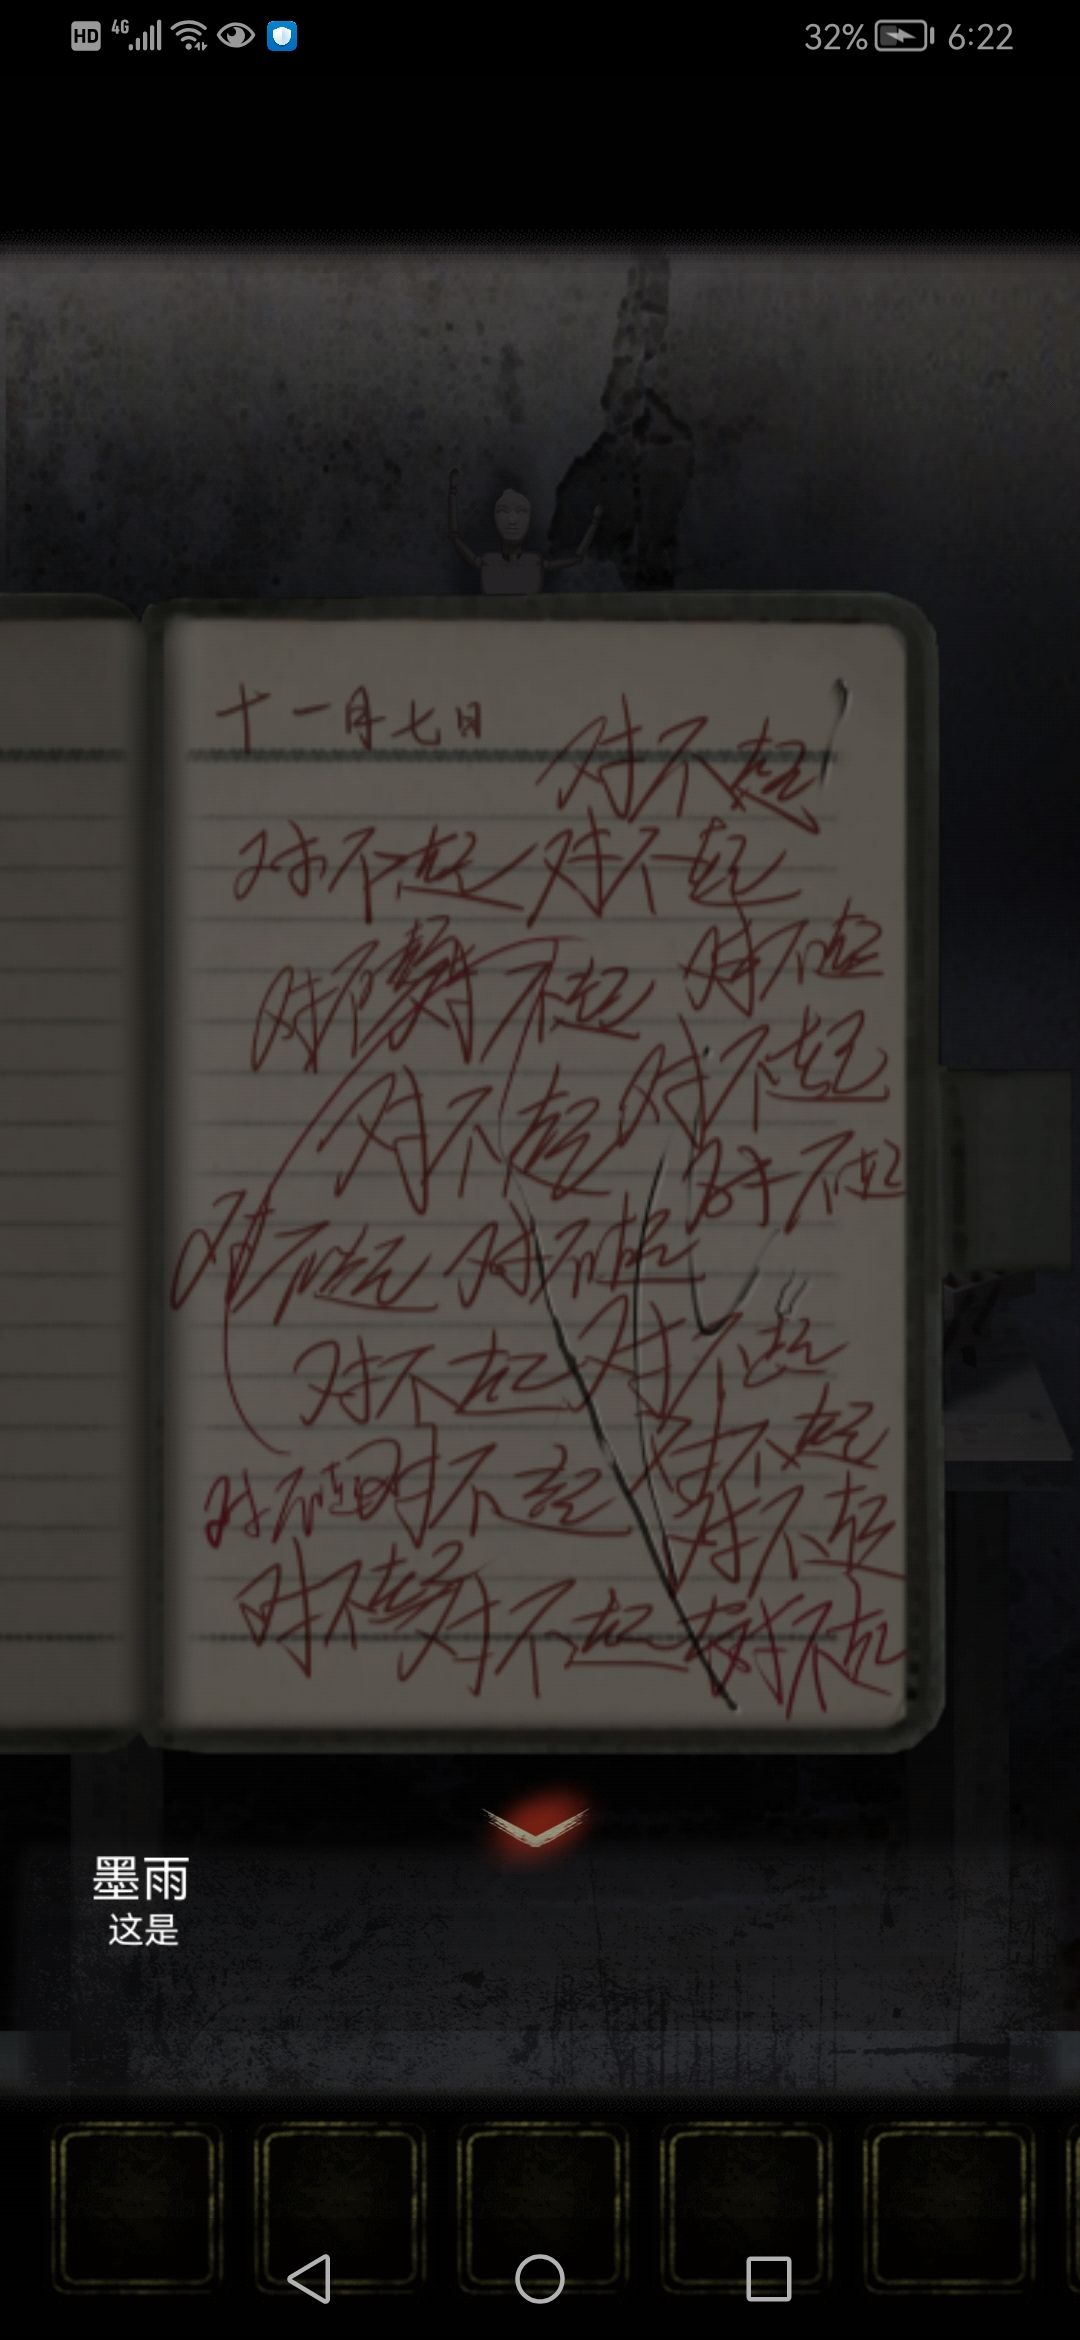 HD 4G 32% 6:22
十一月七日
对不起
对不起 对不起
对不起 对不起 对不起
对不起 对不起
对不起
对不起 对不起
对不起 对不起
对不起
对不起 对不起
对不起
对不起 对不起 对不起
墨雨
这是